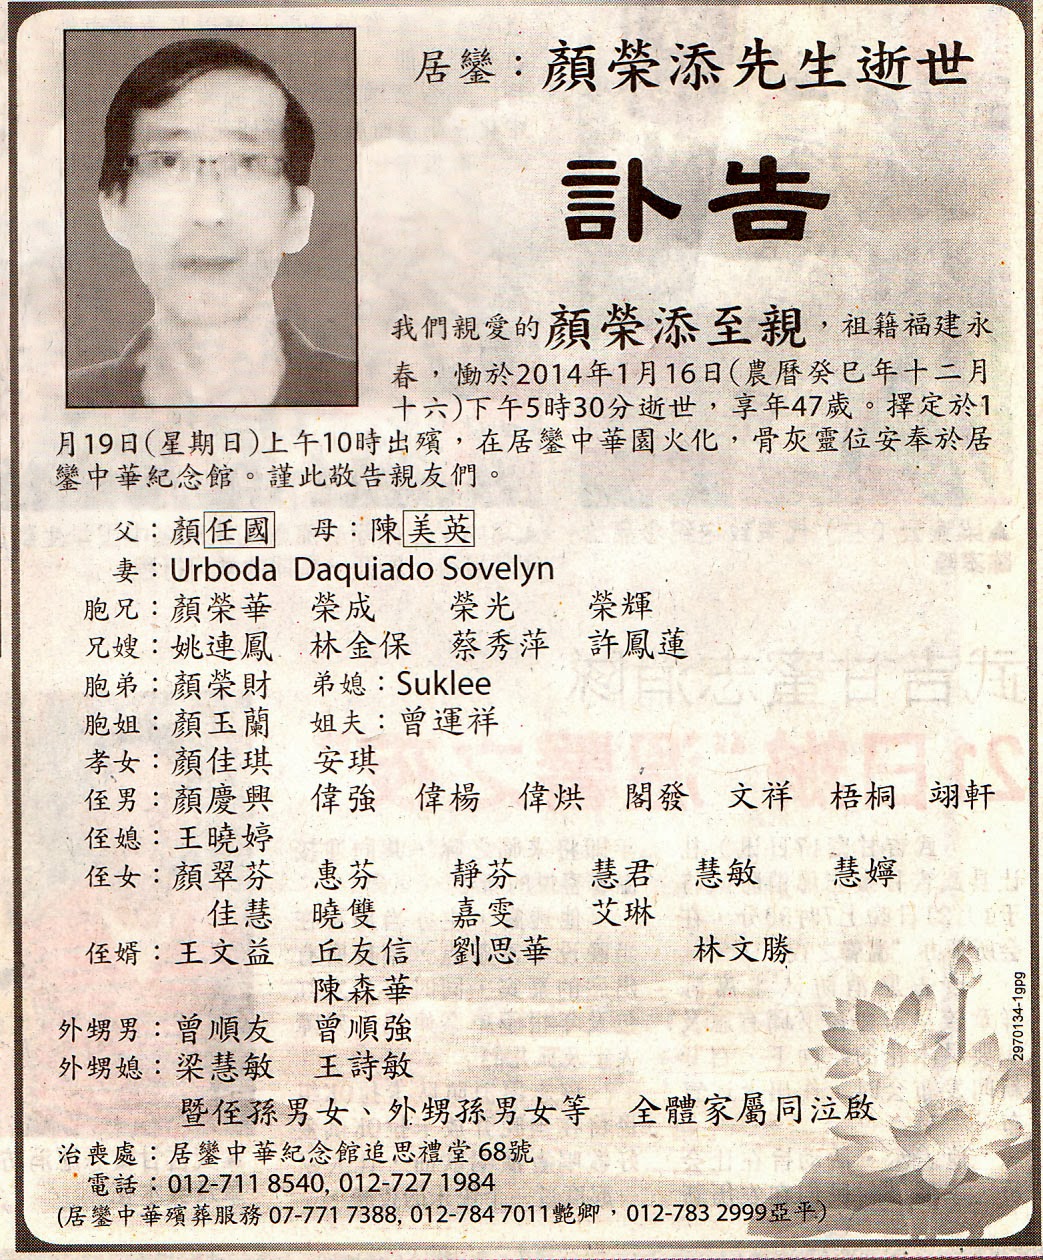 居鑾：顏榮添先生逝世
訃告
我們親愛的顏榮添至親，祖籍福建永
春，慟於2014年1月16日(農曆癸巳年十二月
十六)下午5時30分逝世，享年47歲。擇定於1
月19日(星期日)上午10時出殯，在居鑾中華園火化，骨灰靈位安奉於居
鑾中華紀念館。謹此敬告親友們。
父：顏任國 母：陳美英
妻：Urboda Daquiado Sovelyn
胞兄：顏榮華 榮成 榮光 榮輝
兄嫂：姚連鳳 林金保 蔡秀萍 許鳳蓮
胞弟：顏榮財 弟媳：Suklee
胞姐：顏玉蘭 姐夫：曾運祥
孝女：顏佳琪 安琪
侄男：顏慶興 偉強 偉楊 偉烘 閣發 文祥 梧桐 翊軒
侄媳：王曉婷
侄女：顏翠芬 惠芬 靜芬 慧君 慧敏 慧嬣
佳慧 曉雙 嘉雯 艾琳
侄婿：王文益 丘友信 劉思華 林文勝
陳森華
外甥男：曾順友 曾順強
外甥媳：梁慧敏 王詩敏
暨侄孫男女、外甥孫男女等 全體家屬同泣啟
治喪處：居鑾中華紀念館追思禮堂68號
電話：012-711 8540, 012-727 1984
(居鑾中華殯葬服務 07-771 7388, 012-784 7011艷卿，012-783 2999亞平)
2970134-1gpg